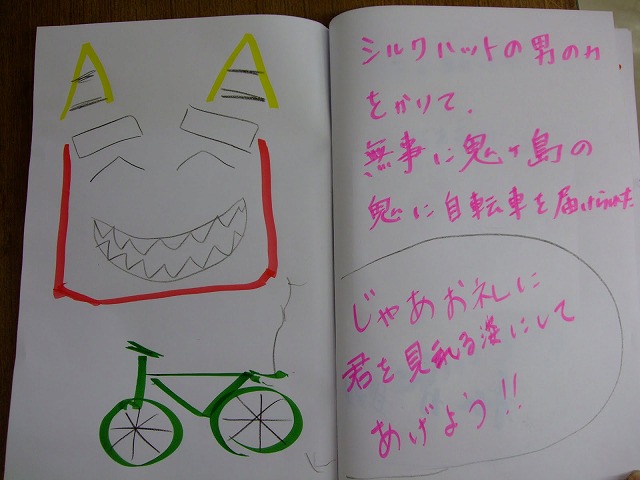 シルクハットの男の力
をかりて、
無事に鬼ヶ島の
鬼に自転車を届けられた
じゃあお礼に
君を見れる姿にして
あげよう!!